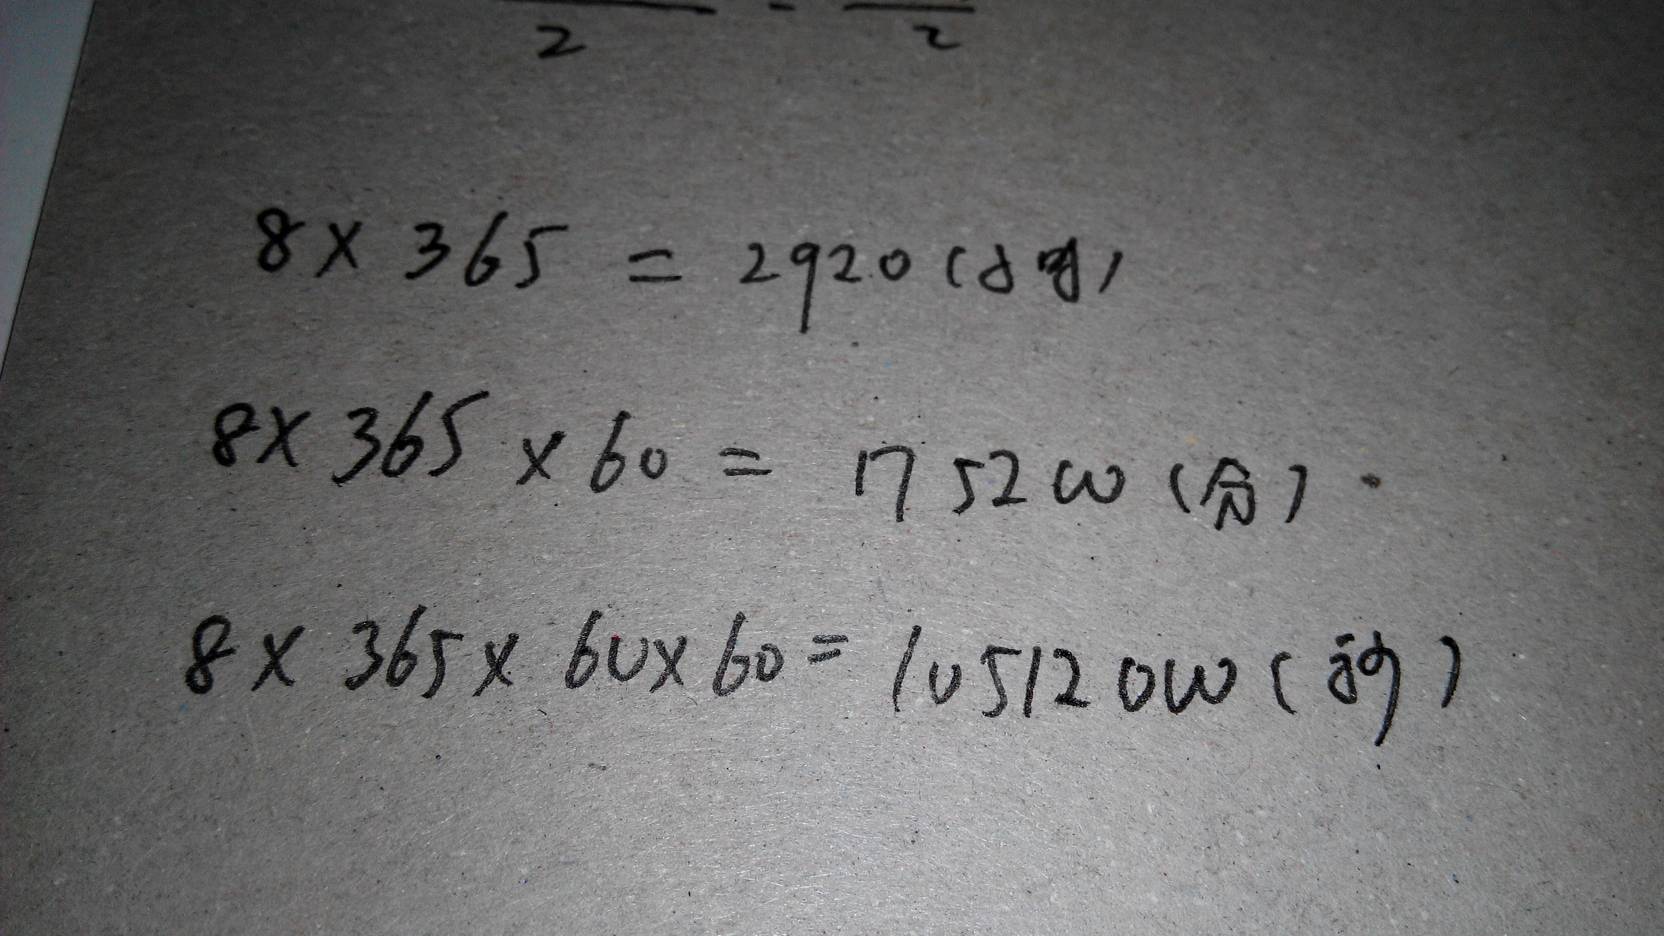 2 - 2
8 × 365 = 2920 (小时)
8 × 365 × 60 = 175200 (分)
8 × 365 × 60 × 60 = 10512000 (秒)